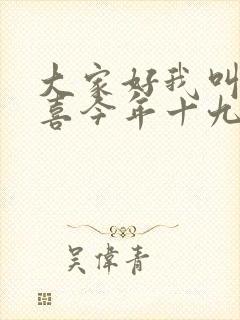 大家好我叫
喜今年十九
吴偉青